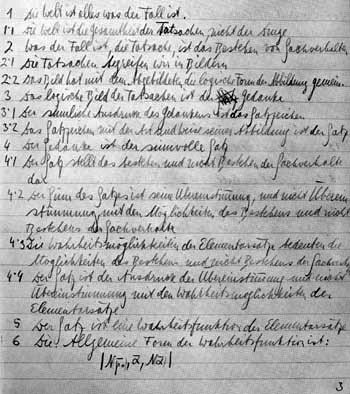 1 Die Welt ist alles was der Fall ist.
1·1 Die Welt ist die Gesamtheit der Tatsachen, nicht der Dinge
2 Was der Fall ist, die Tatsache, ist das Bestehen von Sachverhalten
2·1 Die Tatsachen begreifen wir in Bildern
2·2 Das Bild hat mit dem Abgebildeten die logische Form der Abbildung gemein.
3 Das logische Bild der Tatsachen ist der Gedanke
3·1 Der sinnliche Ausdruck des Gedankens ist das Satzzeichen
3·2 Das Satzzeichen mit der Art und Weise seiner Abbildung ist der Satz
4 Der Gedanke ist der sinnvolle Satz
4·1 Der Satz stellt das Bestehen und nicht Bestehen der Sachverhalte
dar
4·2 Der Sinn des Satzes ist seine Übereinstimmung, und nicht Überein-
stimmung, mit den Möglichkeiten des Bestehens und nicht
Bestehens der Sachverhalte
4·3 Die Wahrheitsmöglichkeiten der Elementarsätze bedeuten die
Möglichkeiten des Bestehens und nicht Bestehens der Sachverhalte
4·4 Der Satz ist der Ausdruck der Übereinstimmung und nicht
Übereinstimmung mit den Wahrheitsmöglichkeiten der
Elementarsätze
5 Der Satz ist eine Wahrheitsfunktion der Elementarsätze
6 Die Allgemeine Form der Wahrheitsfunktion ist:
3